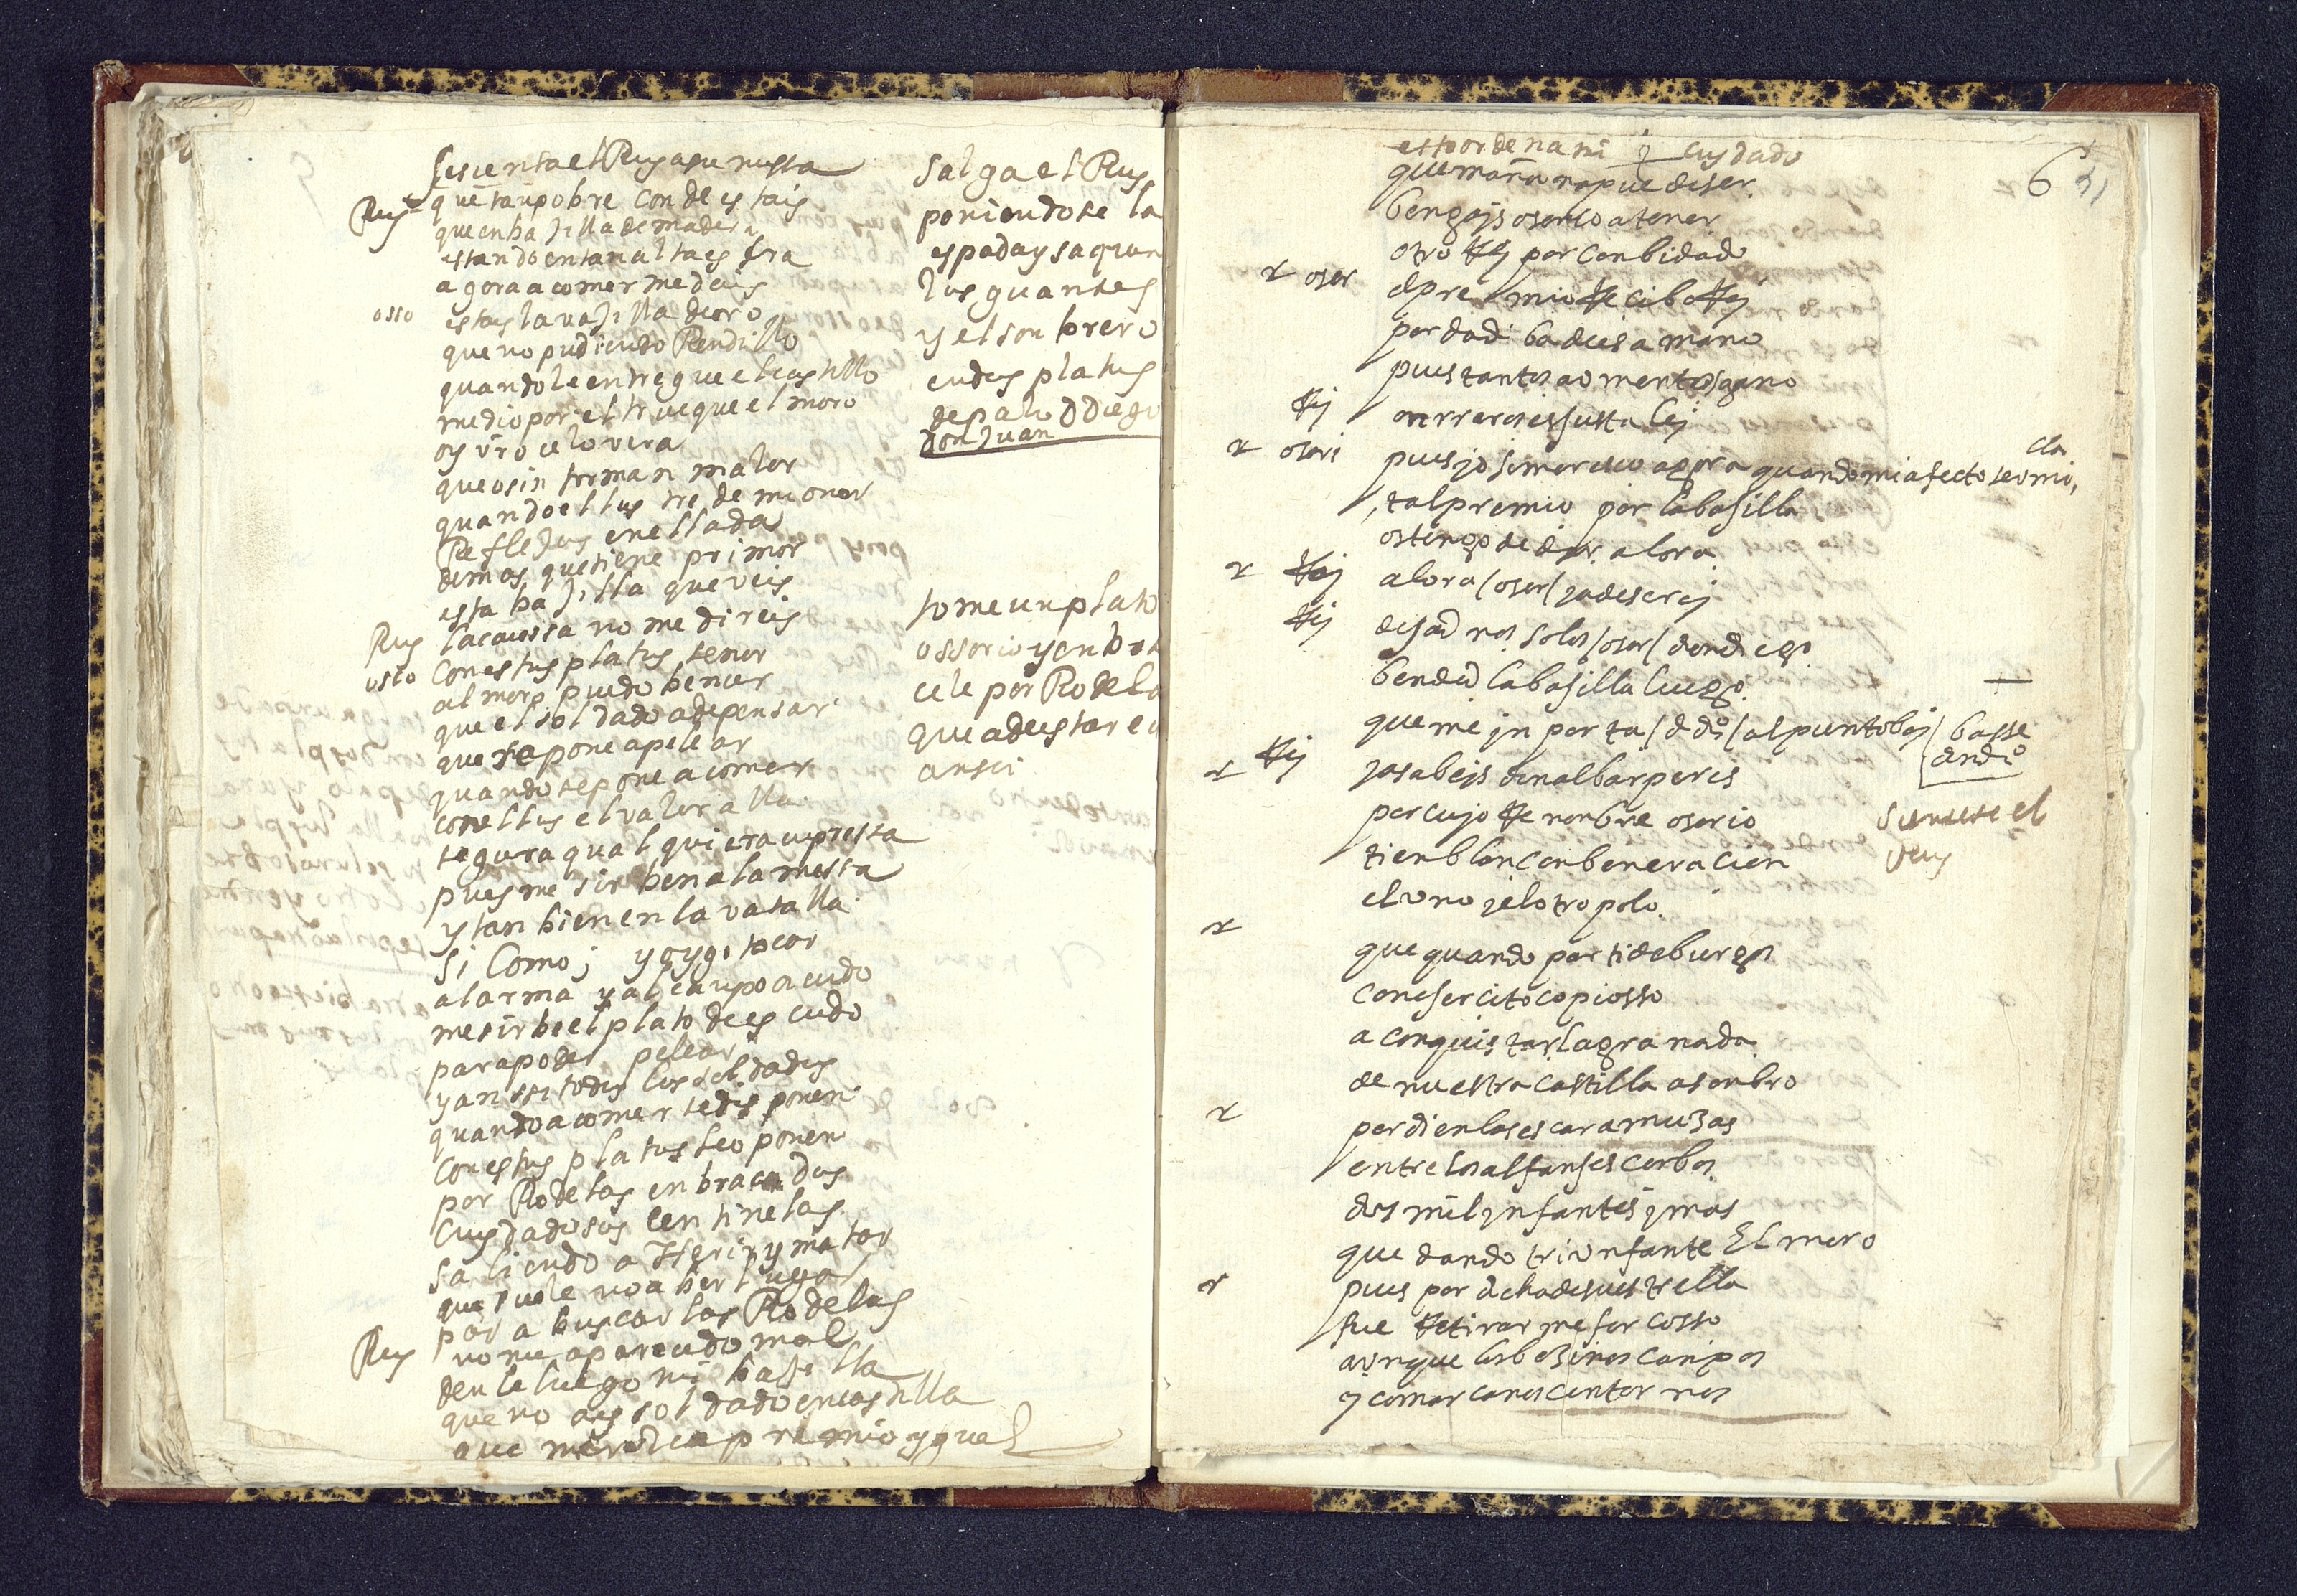 se sienta el Rey a su messa
Rey que tan pobre conde estais
que en bajilla de madera
estando en tan alta esfera
agora a comer me dais
osso estas la vajilla de oro
que no pudiendo Rendillo
quando le entregue el castillo
me dio por el trueque el moro
oy vro celo vera
que os informan malor
quando el lus tre de mi onor
Reflejos en ella da
demas que tiene primor
esta bajilla que veis
Rey la caussa no me direis
osso con estos platos señor
al moro puedo bencer
que el soldado a de pensar
que se pone a pelear
quando se pone a comer
con ellos el valor alla
segura qual quiera empressa
pues me sirben a la messa
y tan bien en la vatalla
si como; y oygo tocar
al arma y al canpo acudo
me sirbe el plato de escudo
para poder pelear
y anssi todos los soldados
quando a comer se disponen
con estos platos se oponen
por Rodelas enbraçados
cuydadosas centinelas
saliendo a Herir y matar
que suele no aber lugar
para buscar las Rodelas
Rey no me a parecido mal
denle luego mi basilla
que no ay soldado en castilla
que meresca premio ygual
Salga el Rey
poniendose la
espada y saquen
los guantes
y el sonbrero
en dos platos
de palo D Diego
don Juan
tome un plato
ossorio y enbra
cele por Rodela
que a de estar en
anssi
6
esto ordena mi cuydado
que mañana puede ser
bengajs osorio a tener
otro Rej por conbidado
osor el premio Recibo Rej
por dadiba de esa mano
pues tantos aumentos gano
Rej onrraros es justa lej
osori pues jo si meresco agora quando mi afecto se omi,
cla
tal premio por la basilla
os tengo de dar a lora
Rej alora / osor / ja de ser ej
Rej dejad nos solos / osor / don diego
bended la basilla luego
que me jn porta / d dio / al punto boj / basse
don dio
Rej ja sabejs don albar peres
por cujo Renonbre osorio
tienblan con beneracion
el uno j el otro polo
sientese el
Rey
que quando parti de burgos
con esercito copiosso
a conquistar la granada
de nuestra castilla asonbro
perdi en las escaramuzas
entre los alfanjes corbos
dos mil jnfantes j mas
quedando triunfante El moro
pues por dicha de su estrella
fue Retirarme forcosso
aunque los bezinos canpos
y comarcanos contornos